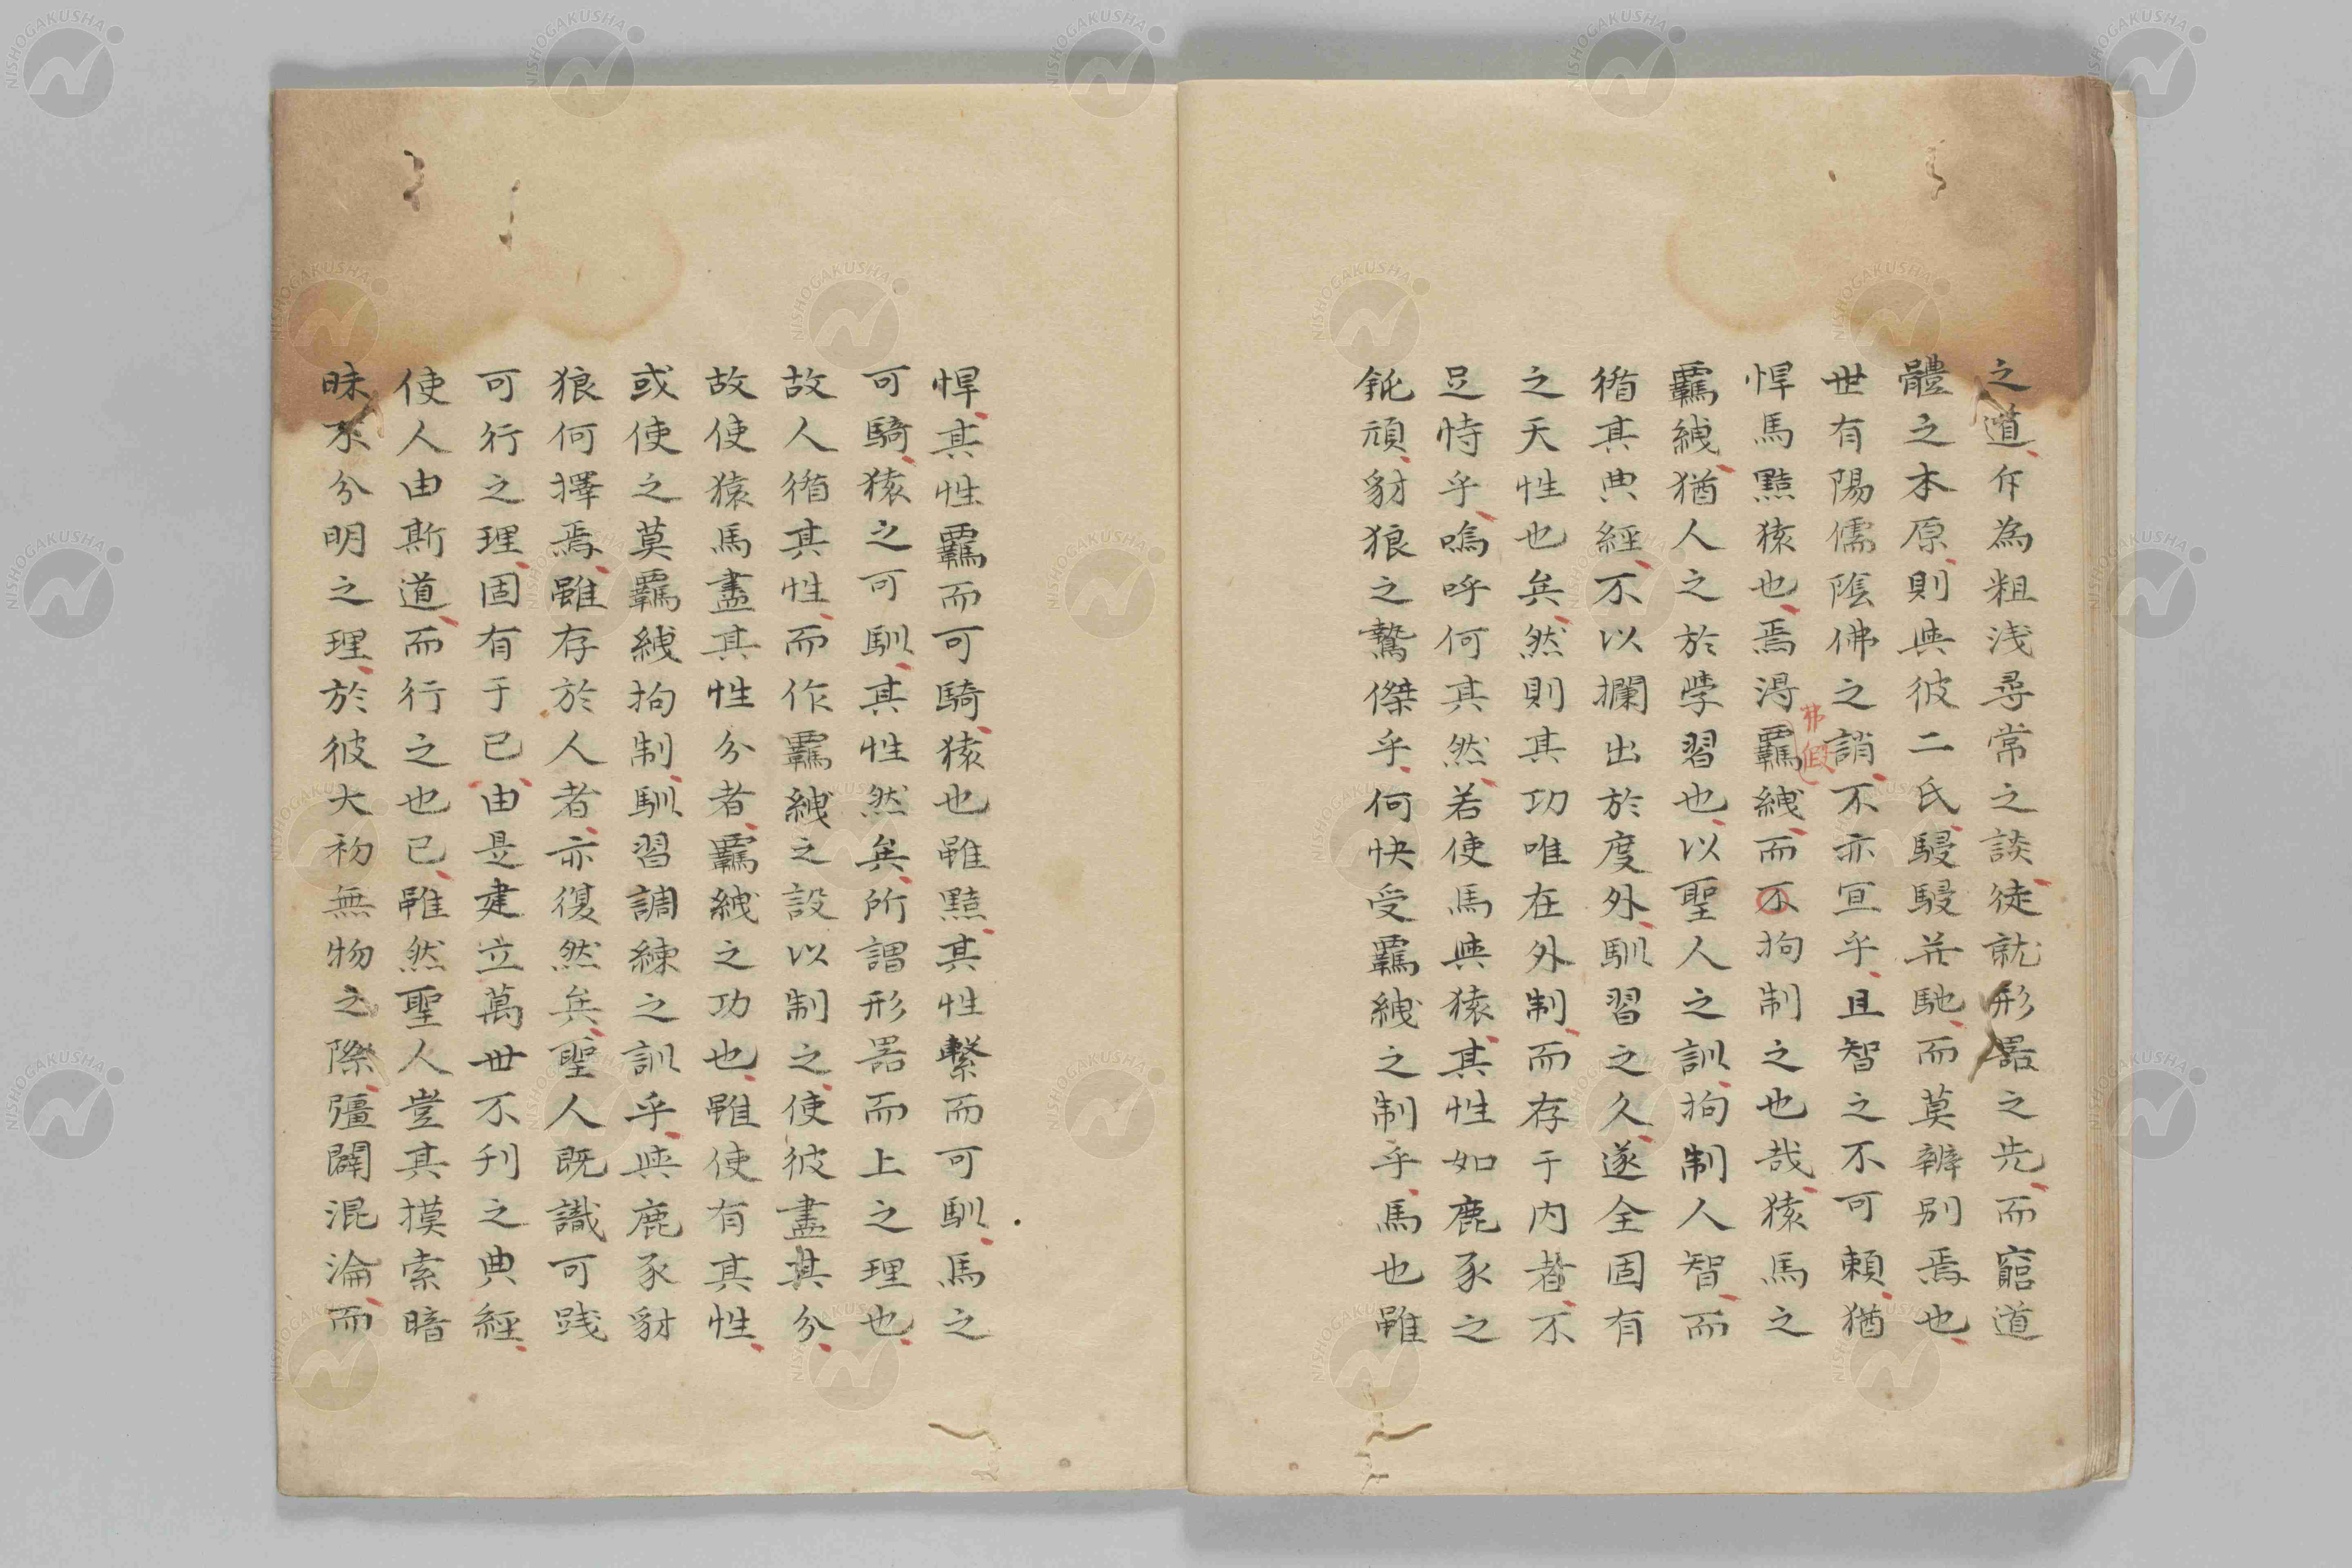 之道斥為粗浅尋常之談徒就形器之先而窮道
體之本原則與彼二氏駸駸並馳而莫辨別焉也
世有陽儒陰佛之誚不亦宜乎且智之不可頼猶
悍馬黠猿也焉得羈絏而不拘制之也哉猿馬之
弗假
羈絏猶人之於学習也以聖人之訓拘制人智而
循其典經不以攔出於度外馴習之久遂全固有
之天性也矣然則其功唯在外制而存于内者不
足恃乎嗚呼何其然若使馬與猿其性如鹿豕之
頑豺狼之驁傑乎何快受羈絏之制乎馬也雖
悍其性羈而可騎猿也雖黠其性繫而可馴馬之
可騎猿之可馴其性然矣所謂形器而上之理也
故人循其性而作羈絏之設以制之使彼盡其分
故使猿馬盡其性分者羈絏之功也雖使有其性
或使之莫羈絏拘制馴習調練之訓乎與鹿豕豺
狼何擇焉雖存於人者亦復然矣聖人既識可践
可行之理固有于己由是建立萬世不刊之典經
使人由斯道而行之也已雖然聖人豈其摸索暗
昧不分明之理於彼大初無物之際彊闢混淪而
NISHOGAKUSHA